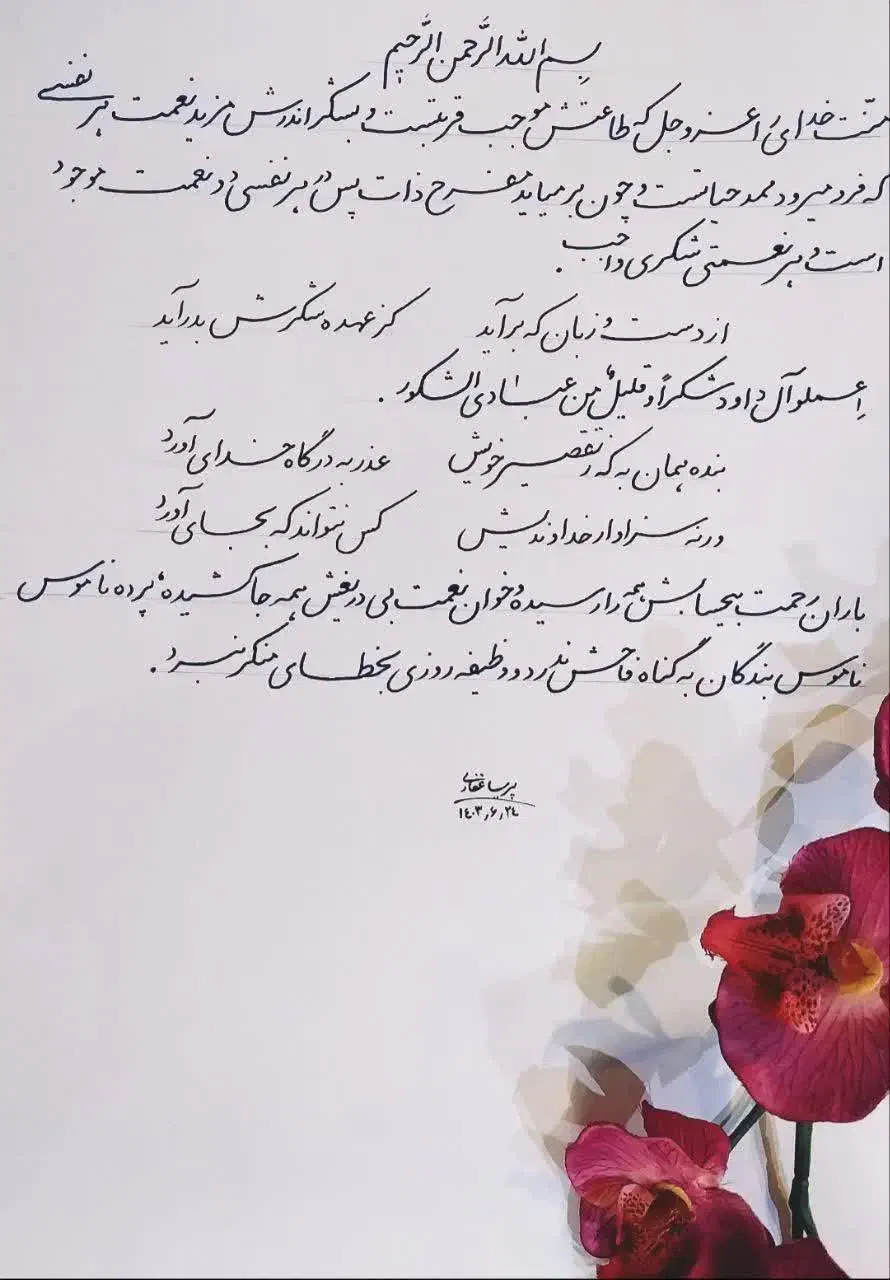 بسم الله الرَّحمن الرَّحیم
منّت خدای را عزوجل که طاعتش موجب قربتست و بشکر اندرش مزید نعمت هر نفسی
که فرو میرود ممد حیاتست و چون بر میاید مفرح ذات پس در هر نفسی دو نعمت موجود
است و بر هر نعمتی شکری واجب.
از دست و زبان که برآید کز عهده شکرش بدرآید
اِعملو آل داود شکراً و قلیلٌ مِن عبادی الشکور.
بنده همان به که ز تقصیر خویش عذر به درگاه خدای آورد
ورنه سزاوار خداوندیش کس نتواند که بجای آورد
باران رحمت بیحسابش همه را رسیده و خوان نعمت بی دریغش همه جا کشیده، پرده ناموس
ناموس بندگان به گناه فاحش ندرد و وظیفه روزی بخطای منکر نبرد.
پریسا غفاری
۱۴۰۳٫۶٫۲۴